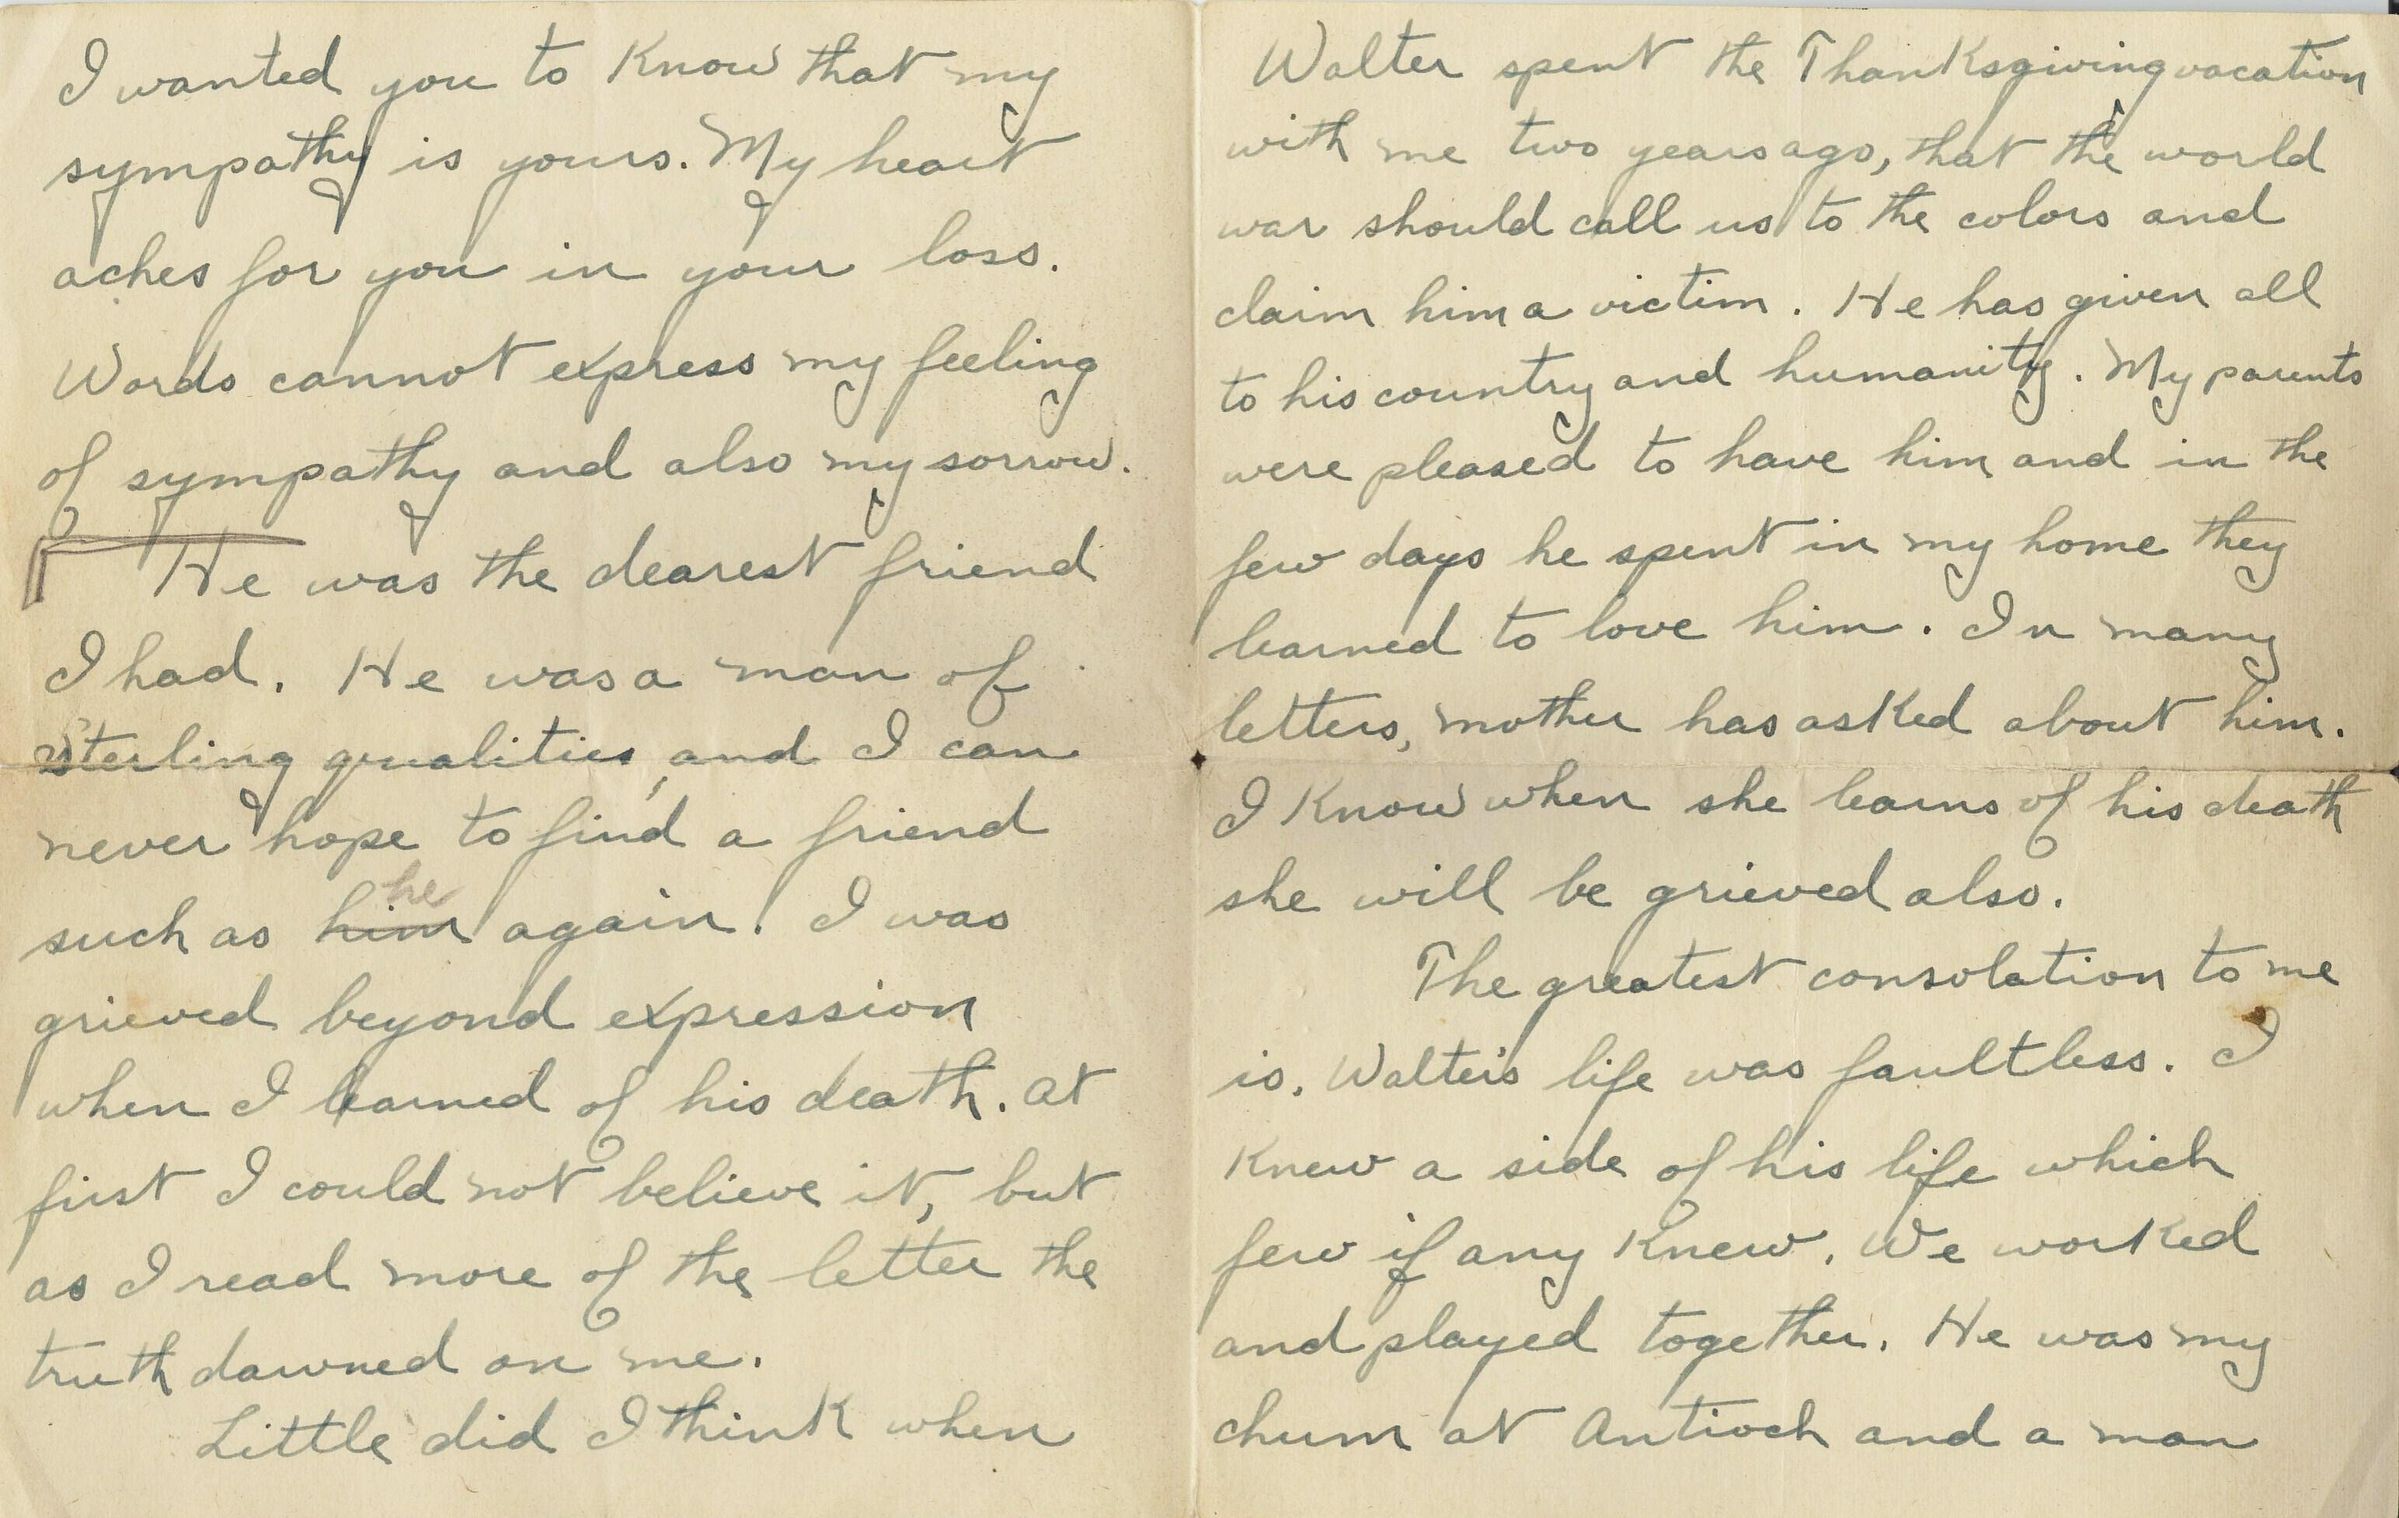 I wanted you to Know that my
sympathy is yours. My heart
aches for you in your loss.
Words cannot express my feeling
of sympathy and also my sorrow.
He was the dearest friend
I had. He was a man of
Sterling qualities, and I can
never hope to find a friend
he
such as him again. I was
grieved beyond expression
when I learned of his death. At
first I could not believe it, but
as I read more of the letter the
truth dawned on me.
Little did I think when
Walter spent the Thanksgiving vacation
with me two years ago, that the world
war should call us to the colors and
claim him a victim. He has given all
to his country and humanity. My parents
were pleased to have him and in the
few days he spent in my home they
learned to love him. In many
letters, mother has asked about him.
I Know when she learns of his death
she will be grieved also.
The greatest consolation to me
is. Walter's life was faultless. I
Knew a side of his life which
few if any Knew. We worked
and played together. He was my
chum at Antioch and a man